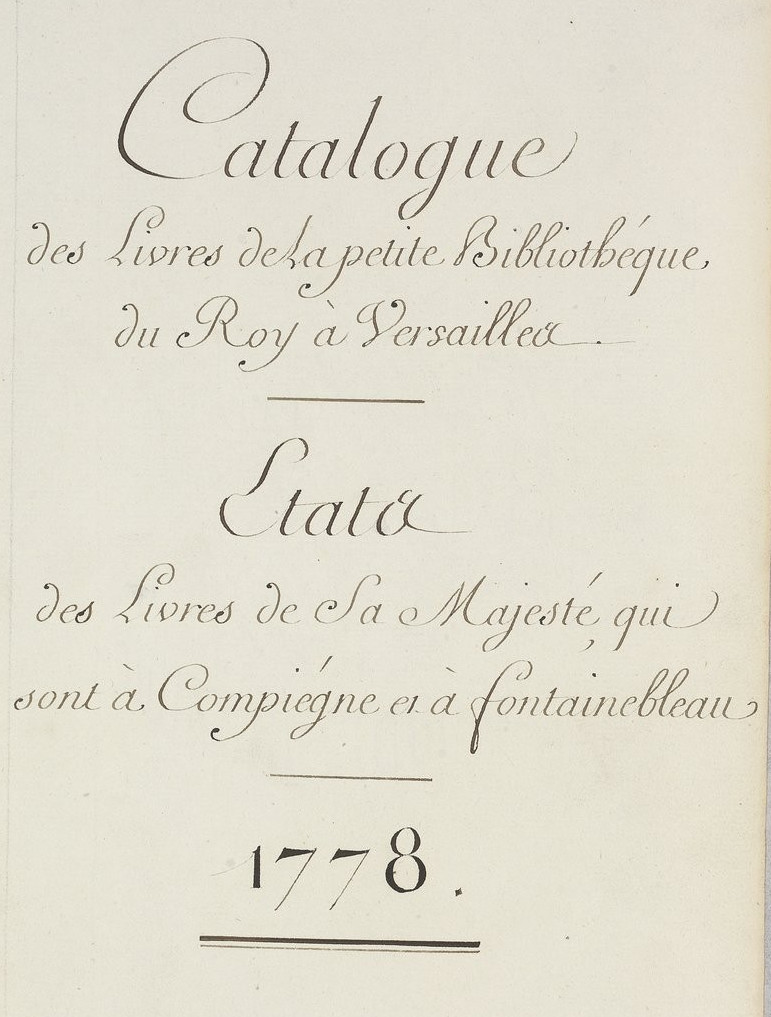 Catalogue
des Livres de La petite Bibliothéque
du Roy à Versailles.
Etats
des Livres de Sa Majesté, qui
sont à Compiégne et à fontainebleau
1778.